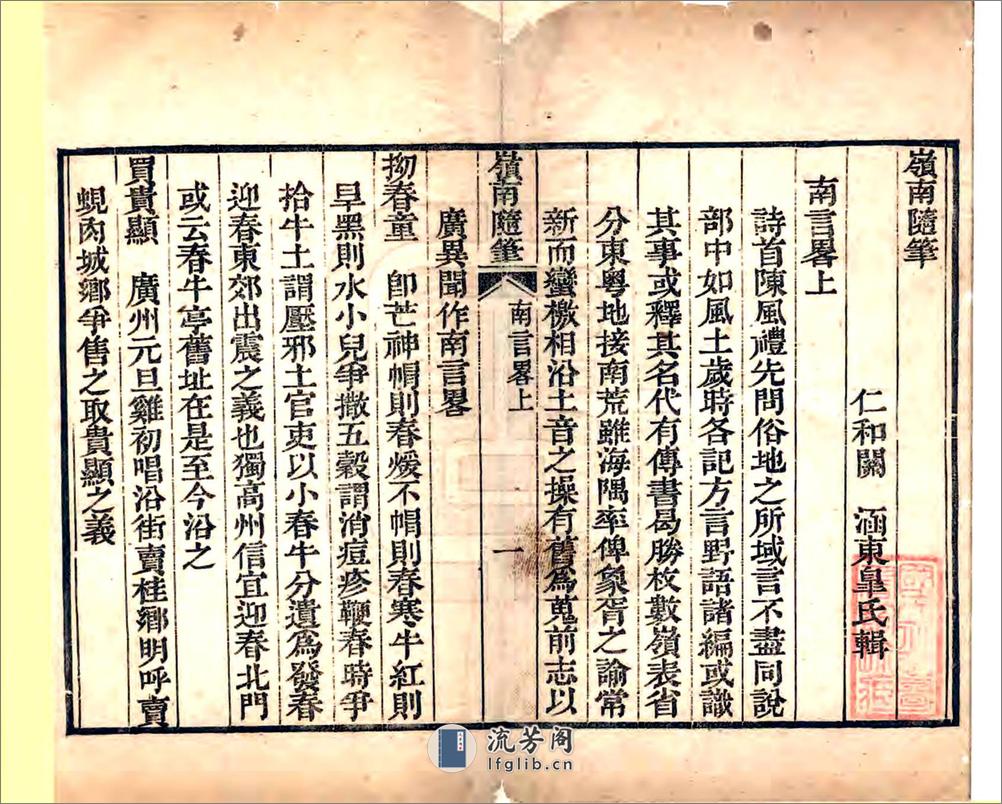 嶺南隨筆
仁和關　涵東臯氏輯
南言畧上
詩首陳風禮先問俗地之所域言不盡同說
部中如風土歲時各記方言野語諸編或識
其事或釋其名代有傳書曷勝枚數嶺表省
分東粤地接南荒雖海隅率俾象胥之諭常
新而蠻檄相沿土音之操有舊爲蒐前志以
嶺南隨筆
南言畧上
一
廣異聞作南言畧
抝春童　卽芒神帩則春煖不帩則春寒牛紅則
旱黑則水小兒爭撒五穀謂消痘疹鞭春時爭
拾牛土謂壓邪土官吏以小春牛分遺爲發春
迎春東郊出震之義也獨高州信宜迎春北門
或云春牛亭舊址在是至今沿之
買貴顯　廣州元旦雞初唱沿街賣桂鄉明呼賣
蜆肉城鄉爭售之取貴顯之義
流芳阁
lfglib.cn